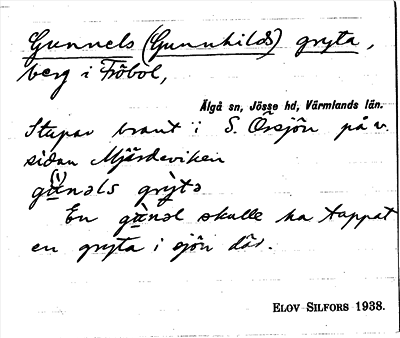 Gunnels (Gunnhilds) gryta,
berg i Fröbol,
Älgå sn, Jösse hd, Värmlands län.
Stupar brant i S. Örsjön på v.
sidan Mjärdeviken
gu̇̀nəls gry̆̀tə
En gu̇̀nəl skulle ha tappat
en gryta i sjön där.
ELOV SILFORS 1938.